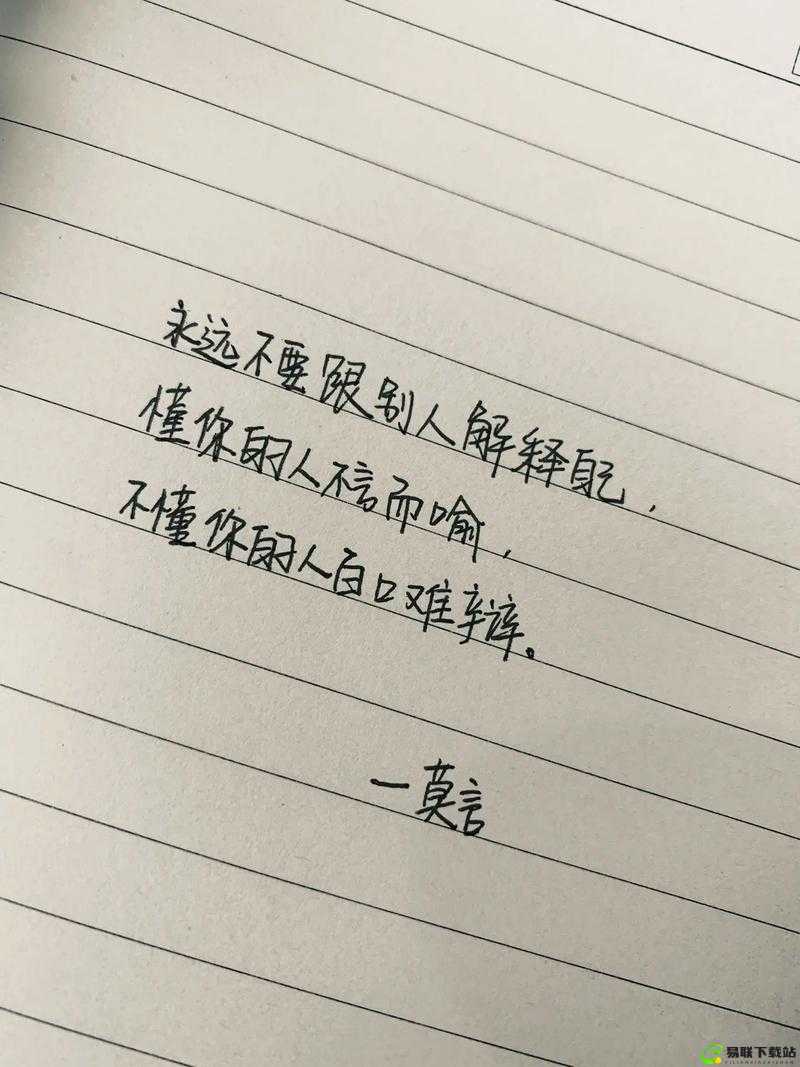 永远不要跟别人解释自己，
懂你的人不言而喻，
不懂你的人百口难辩。
一莫言
易联下载站